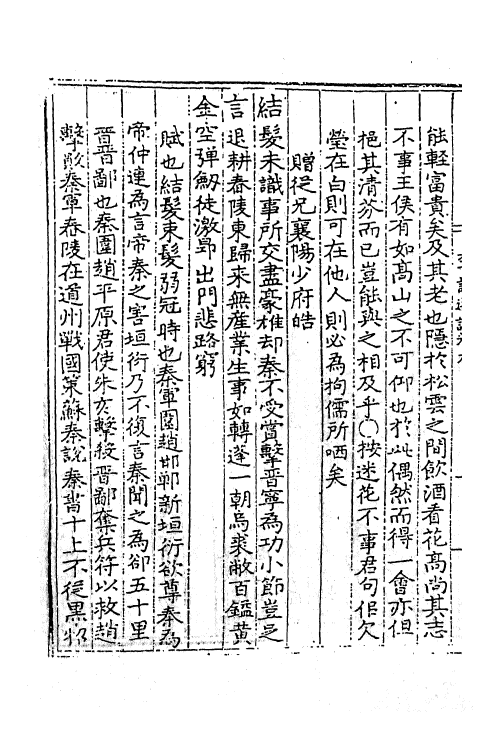 能輕富貴矣及其老也隱於松雲之間飲酒看花髙尚其志
不事王侯有如髙山之不可仰也於此偶然而得一會亦但
挹其清芬而已豈能與之相及乎〇按迷花不事君句佀欠
瑩在白則可在他人則必為拘儒所哂矣
贈從兄襄陽少府皓
結髮未識事所交盡豪雄却秦不受賞擊晋寧為功小節豈足
言退耕舂陵東歸來無産業生事如轉蓬一朝烏裘敝百鎰黄
金空弹劒徒激昂出門悲路窮
賦也結髮束髮弱冠時也秦軍圍趙邯鄲新垣衍欲尊秦為
帝仲連為言帝秦之害垣衍乃不復言秦聞之為卻五十里
晉晋鄙也秦圍趙平原君使朱亥擊殺晋鄙奪兵符以救趙
擊敵秦軍舂陵在道州戰國策蘇秦說秦書十上不從黒貂